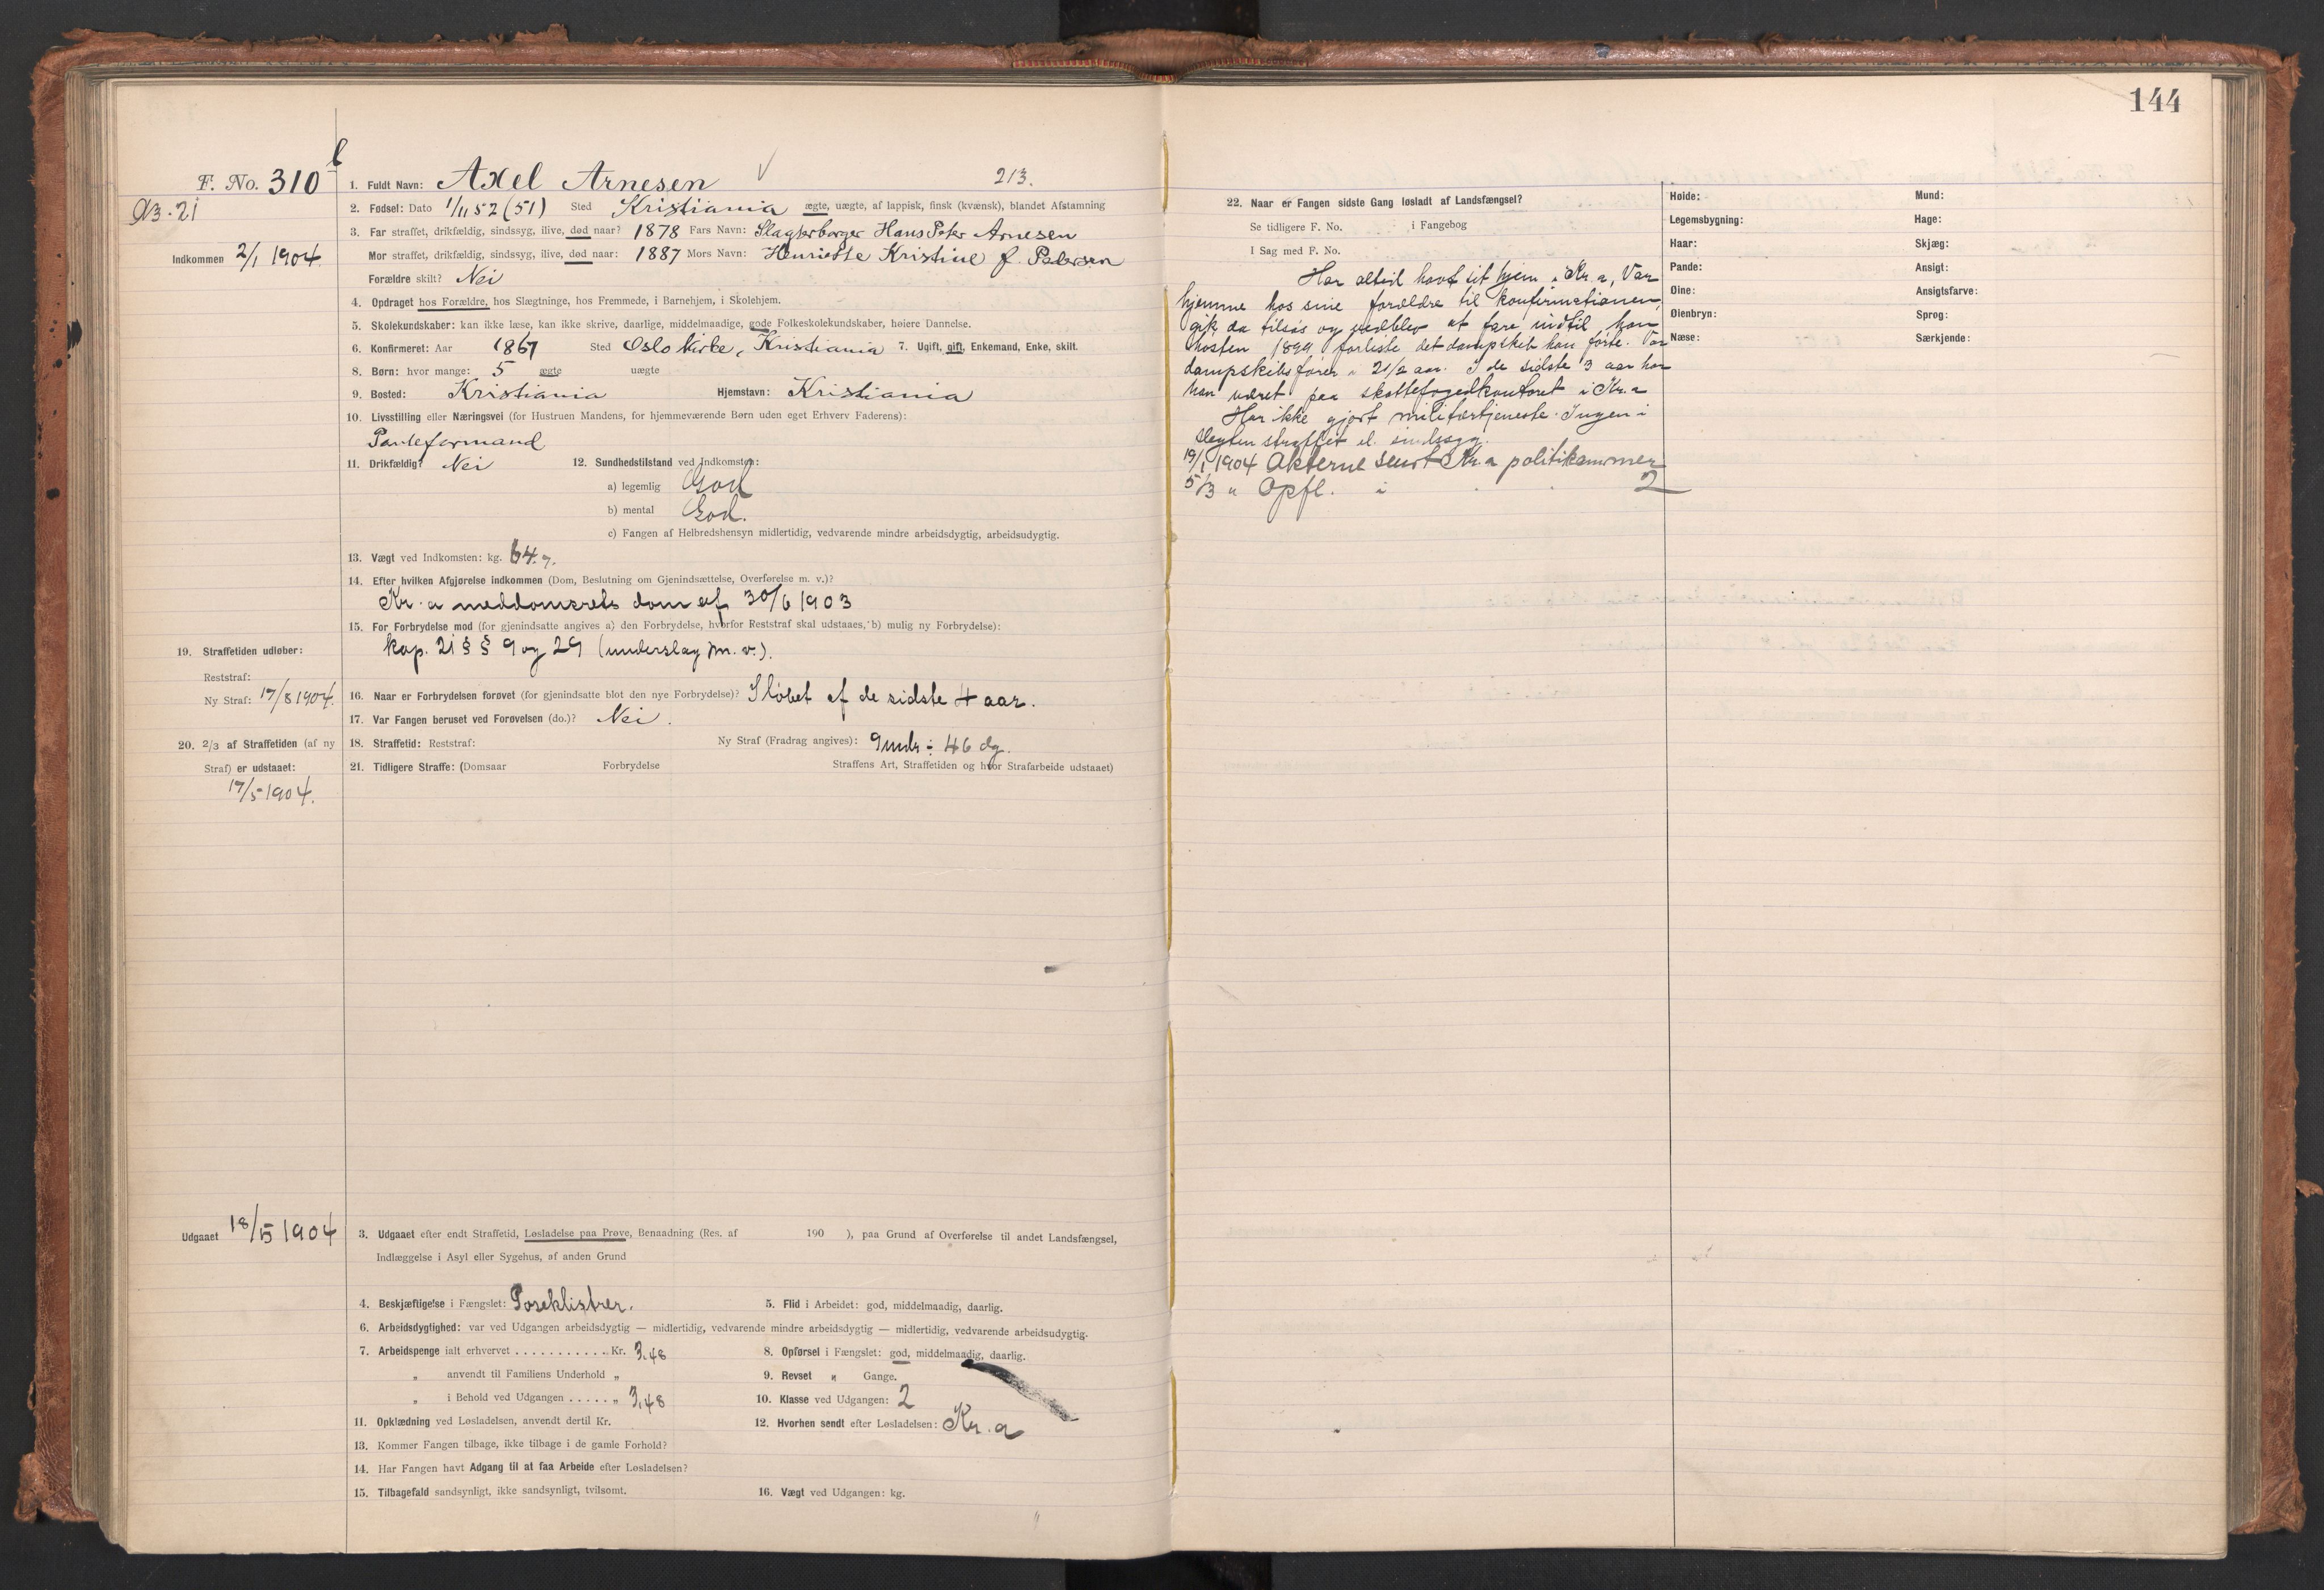 144
b
F. No. 310
1. Fuldt Navn: Axel Arnesen
213.
2. Fødsel: Dato 1/11 52 (51) Sted Kristiania ægte, uægte, af lappisk, finsk (kvænsk), blandet Afstamning
3. Far straffet, drikfældig, sindssyg, ilive, død naar? 1878 Fars Navn: Slagterborger Hans Peter Arnesen
Indkommen 2/1 1904
Mor straffet, drikfældig, sindssyg, ilive, død naar: 1887 Mors Navn: Henriette Kristine f. Petersen
Forældre skilt? Nei
4. Opdraget hos Forældre, hos Slægtninge, hos Fremmede, i Barnehjem, i Skolehjem.
5. Skolekundskaber: kan ikke læse, kan ikke skrive, daarlige, middelmaadige, gode Folkeskolekundskaber, høiere Dannelse.
6. Konfirmeret: Aar 1867 Sted Oslo Kirke, Kristiania 7. Ugift, gift, Enkemand, Enke, skilt.
8. Børn: hvor mange: 5 ægte uægte
9. Bosted: Kristiania Hjemstavn: Kristiania
10. Livsstilling eller Næringsvei (for Hustruen Mandens, for hjemmeværende Børn uden eget Erhverv Faderens):
Panteformand
11. Drikfældig? Nei 12. Sundhedstilstand ved Indkomsten:
a) legemlig God
b) mental God.
c) Fangen af Helbredshensyn midlertidig, vedvarende mindre arbeidsdygtig, arbeidsudygtig.
13. Vægt ved Indkomsten: kg. 64.7.
14. Efter hvilken Afgjørelse indkommen (Dom, Beslutning om Gjenindsættelse, Overførelse m. v.)?
Kr.a meddomsrets dom af 30/6 1903
15. For Forbrydelse mod (for gjenindsatte angives a) den Forbrydelse, hvorfor Reststraf skal udstaaes, b) mulig ny Forbrydelse):
kap. 21 §§ 9 og 29 (underslag m. v.).
19. Straffetiden udløber:
Reststraf:
Ny Straf: 17/8 1904.
16. Naar er Forbrydelsen forøvet (for gjenindsatte blot den nye Forbrydelse)? I løbet af de sidste 4 aar.
17. Var Fangen beruset ved Forøvelsen (do.)? Nei.
20. 2/3 af Straffetiden (af ny
Straf) er udstaaet:
17/5 1904.
18. Straffetid: Reststraf: Ny Straf (Fradrag angives): 9 mdr ÷ 46 dg.
21. Tidligere Straffe: (Domsaar Forbrydelse Straffens Art, Straffetiden og hvor Strafarbeide udstaaet)
Udgaaet 18/5 1904
3. Udgaaet efter endt Straffetid, Løsladelse paa Prøve, Benaadning (Res. af 190 ), paa Grund af Overførelse til andet Landsfængsel,
Indlæggelse i Asyl eller Sygehus, af anden Grund
4. Beskjæftigelse i Fængslet: Poseklistrer. 5. Flid i Arbeidet: god, middelmaadig, daarlig.
6. Arbeidsdygtighed: var ved Udgangen arbeidsdygtig — midlertidig, vedvarende mindre arbeidsdygtig — midlertidig, vedvarende arbeidsudygtig.
7. Arbeidspenge ialt erhvervet . . . . . . . . . . . Kr. 3.48 8. Opførsel i Fængslet: god, middelmaadig, daarlig.
„ anvendt til Familiens Underhold „ 9. Revset „ Gange.
„ i Behold ved Udgangen . . . . . „ 3,48 10. Klasse ved Udgangen: 2
11. Opklædning ved Løsladelsen, anvendt dertil Kr. 12. Hvorhen sendt efter Løsladelsen: Kr.a
13. Kommer Fangen tilbage, ikke tilbage i de gamle Forhold?
14. Har Fangen havt Adgang til at faa Arbeide efter Løsladelsen?
15. Tilbagefald sandsynligt, ikke sandsynligt, tvilsomt. 16. Vægt ved Udgangen: kg.
22. Naar er Fangen sidste Gang løsladt af Landsfængsel?
Se tidligere F. No. i Fangebog
I Sag med F. No.
Har altid havt sit hjem i Kr.a, Var
hjemme hos sine forældre til konfirmationen,
gik da tilsjøs og vedblev at fare indtil han
høsten 1899 forliste det dampskib han førte. Var
dampskibsfører i 21/2 aar. I de sidste 3 aar har
han været paa skattefogedkontoret i Kr.a
Har ikke gjort militærtjeneste. Ingen i
slegten straffet el. sindssyg.
19/1 1904 Akterne sendt Kr.a politikammer
5/3 " Opfl. i 2
Høide: Mund:
Legemsbygning: Hage:
Haar: Skjæg:
Pande: Ansigt:
Øine: Ansigtsfarve:
Øienbryn: Sprog:
Næse: Særkjende: